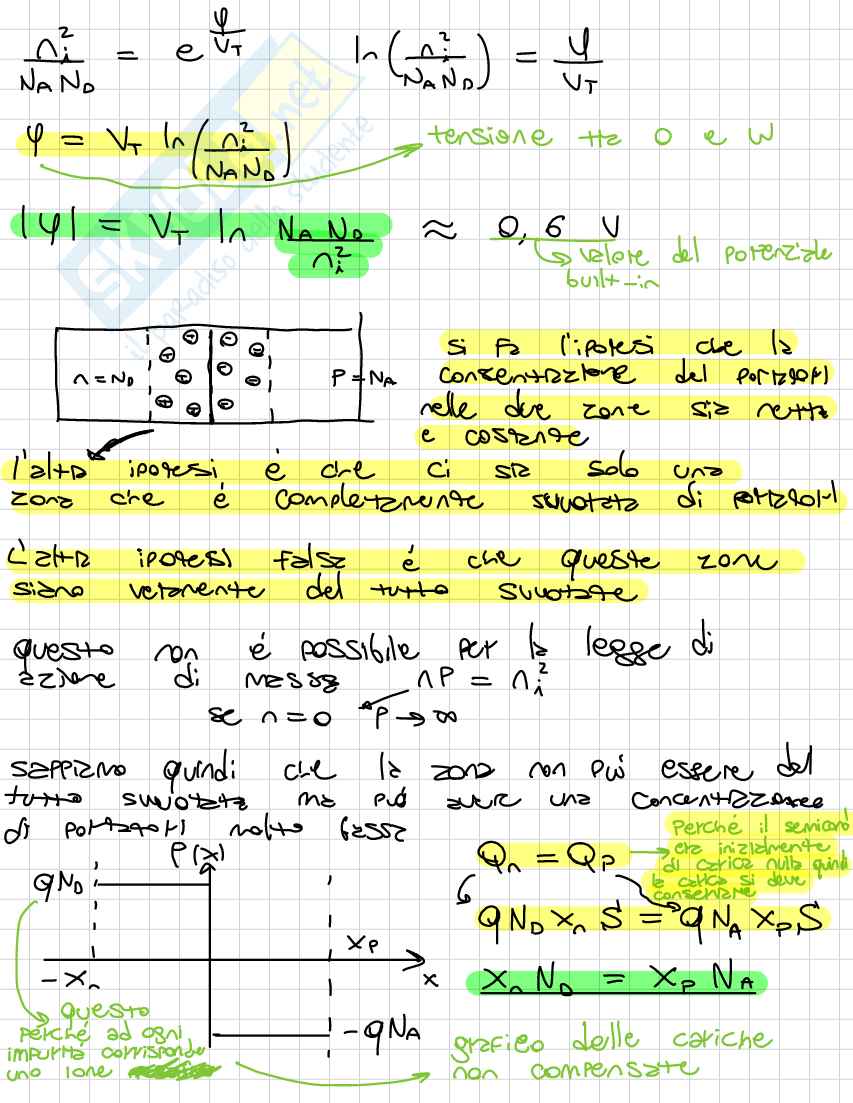 n_i²/(N_A N_D) = e^(φ/V_T)    ln(n_i²/(N_A N_D)) = φ/V_T
φ = V_T ln(n_i²/(N_A N_D)) → tensione tra 0 e W
|φ| = V_T ln (N_A N_D)/n_i² ≈ 0,6 V
→ valore del potenziale
built-in
n = N_D    P = N_A
si fa l'ipotesi che la
concentrazione dei portatori
nelle due zone sia netta
e costante
l'altra ipotesi é che ci sia solo una
zona che é completamente svuotata di portatori
L'altra ipotesi falsa é che queste zone
siano veramente del tutto svuotate
questo non é possibile per la legge di
azione di massa  nP = n_i²
se n = 0  P → ∞
sappiamo quindi che la zona non può essere del
tutto svuotata ma può avere una concentrazione
di portatori molto bassa
ρ(x)
qN_D
x_P
-x_n
x
-qN_A
Q_n = Q_P →
Perché il semicond
era inizialmente
di carica nulla quindi
la carica si deve
conservare
qN_D x_n S = qN_A x_P S
x_n N_D = x_P N_A
questo
perché ad ogni
impurità corrisponde
uno ione
grafico delle cariche
non compensate
skuola.net
il paradiso dello studente